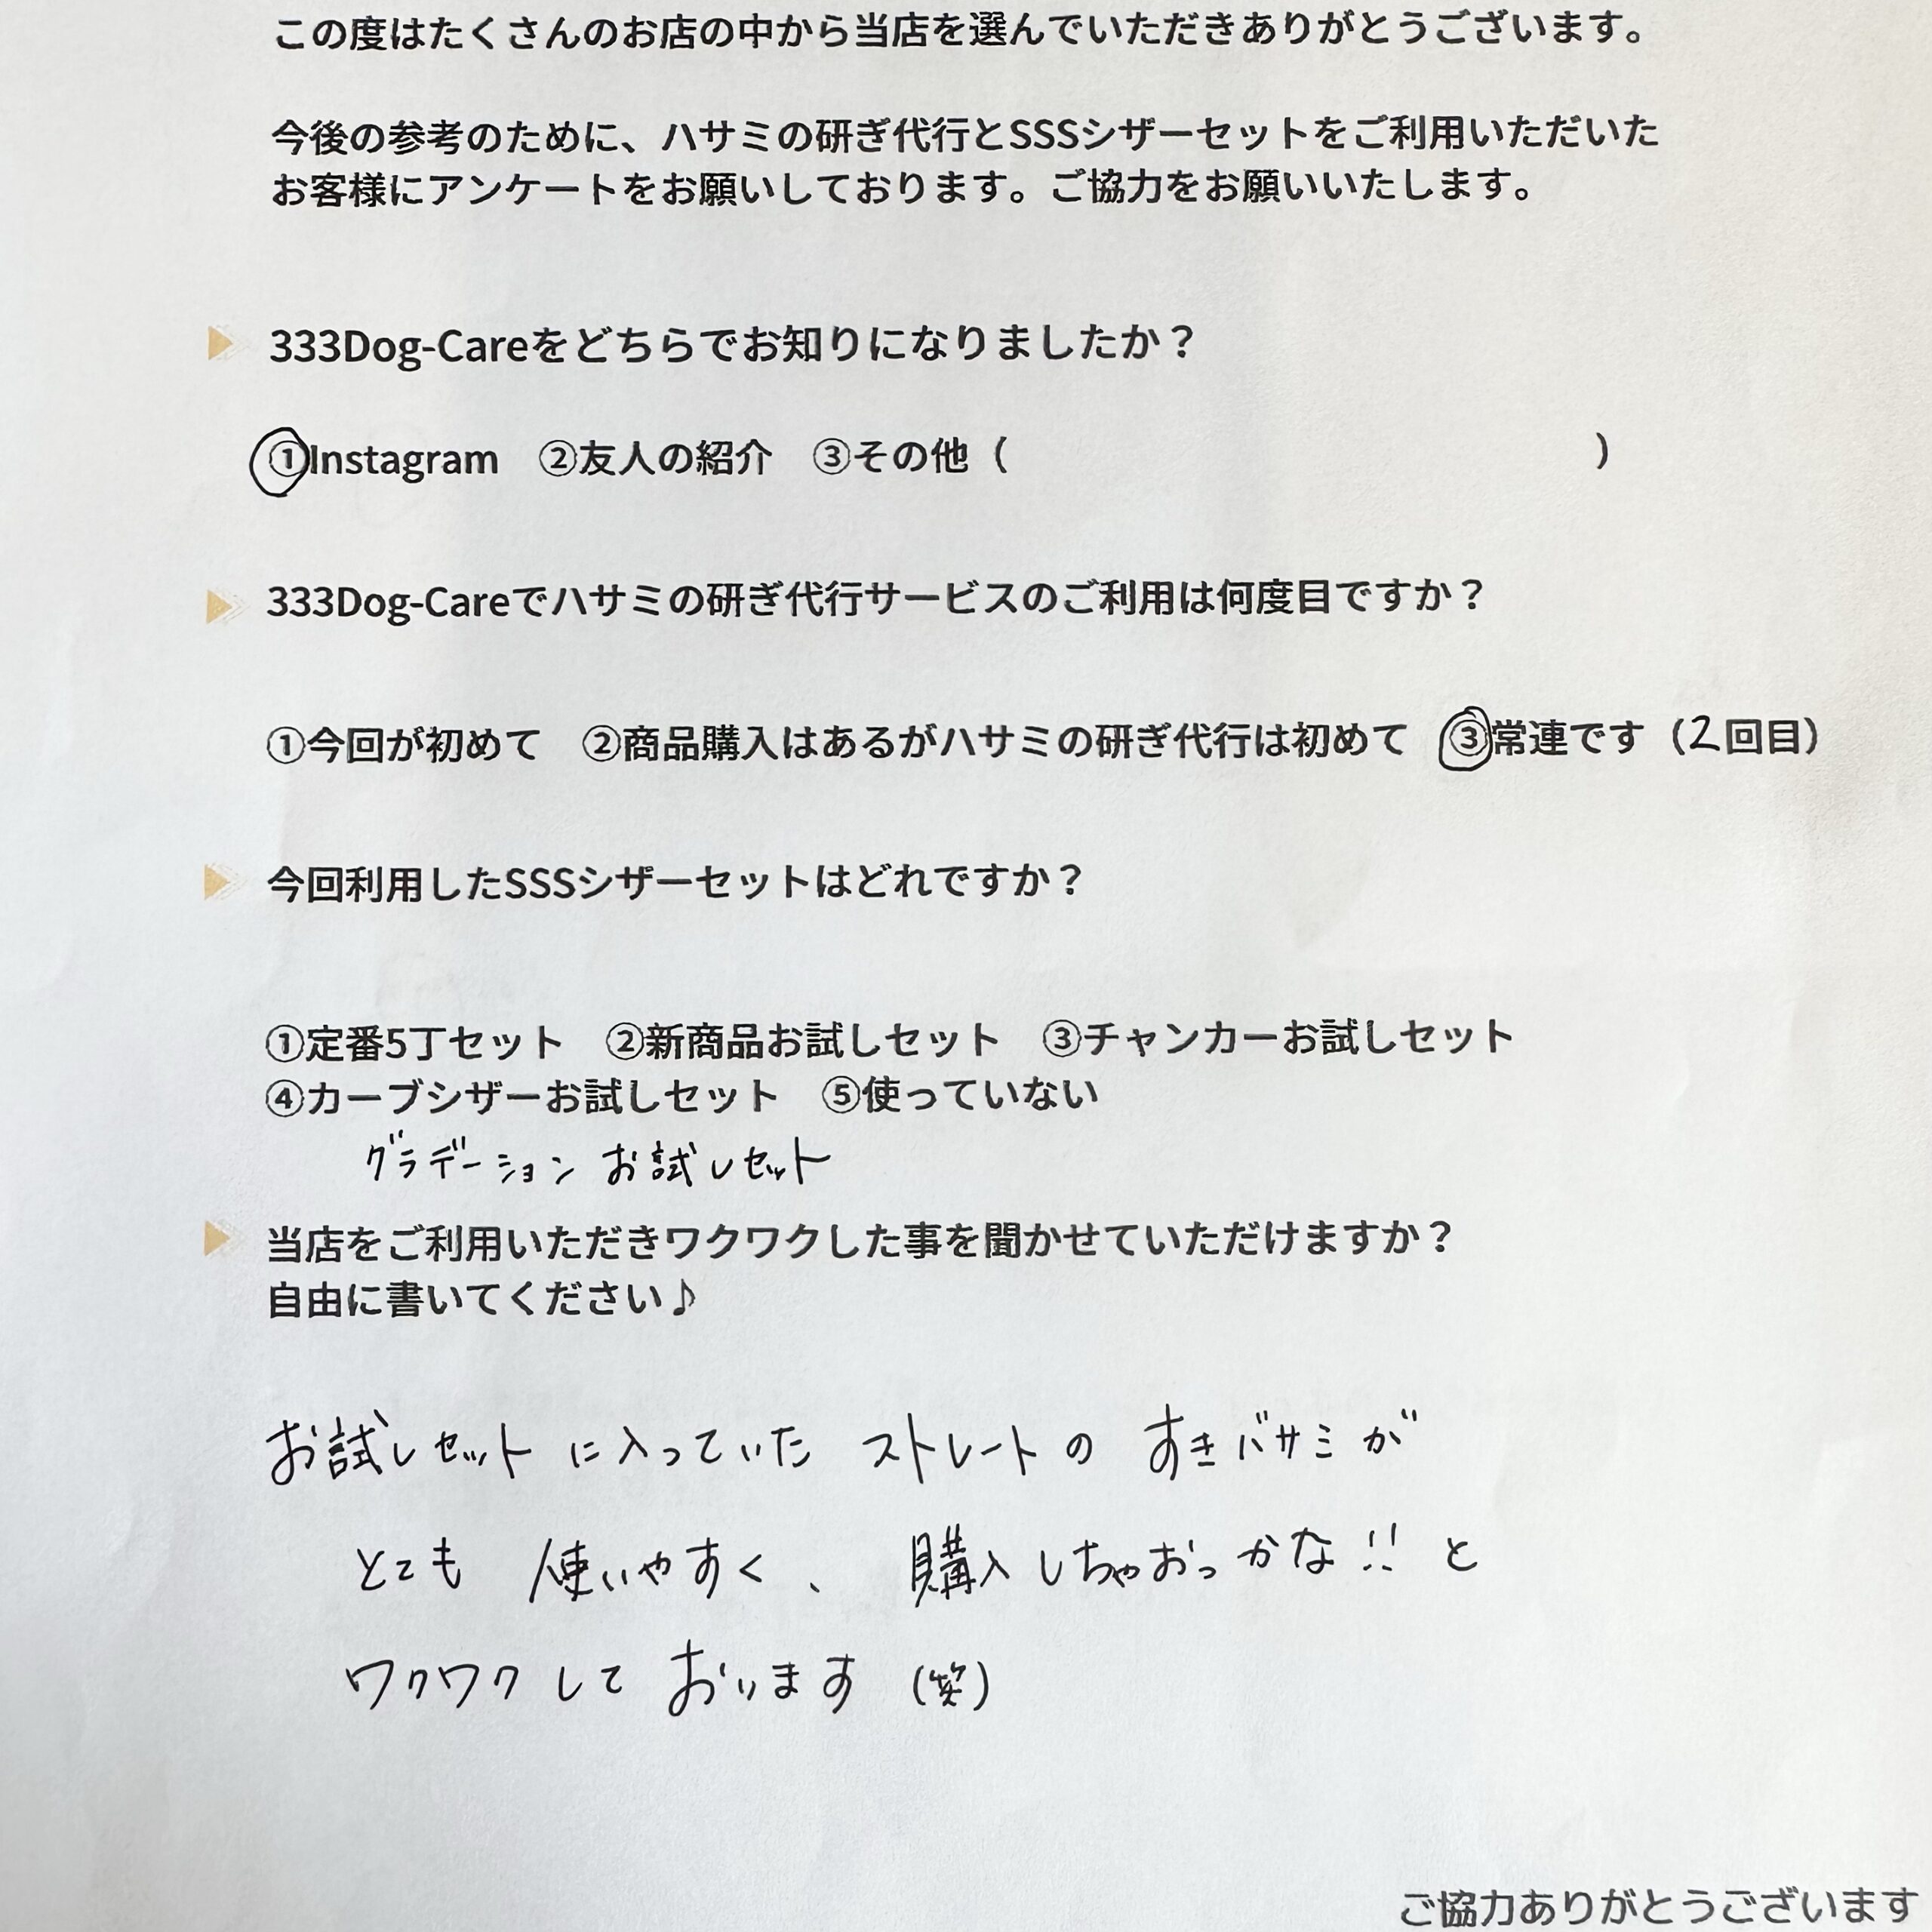 この度はたくさんのお店の中から当店を選んでいただきありがとうございます。
今後の参考のために、ハサミの研ぎ代行とSSSシザーセットをご利用いただいた
お客様にアンケートをお願いしております。ご協力をお願いいたします。
333Dog-Careをどちらでお知りになりましたか？
①Instagram　②友人の紹介　③その他（　　　　　　　　　　　　　　　）
333Dog-Careでハサミの研ぎ代行サービスのご利用は何度目ですか？
①今回が初めて　②商品購入はあるがハサミの研ぎ代行は初めて　③常連です（2回目）
今回利用したSSSシザーセットはどれですか？
①定番5丁セット　②新商品お試しセット　③チャンカーお試しセット
④カーブシザーお試しセット　⑤使っていない
グラデーション お試しセット
当店をご利用いただきワクワクした事を聞かせていただけますか？
自由に書いてください♪
お試しセットに入っていた ストレートの すきバサミが
とても 使いやすく、 購入しちゃおっかな!! と
ワクワクして おります (笑)
ご協力ありがとうございます